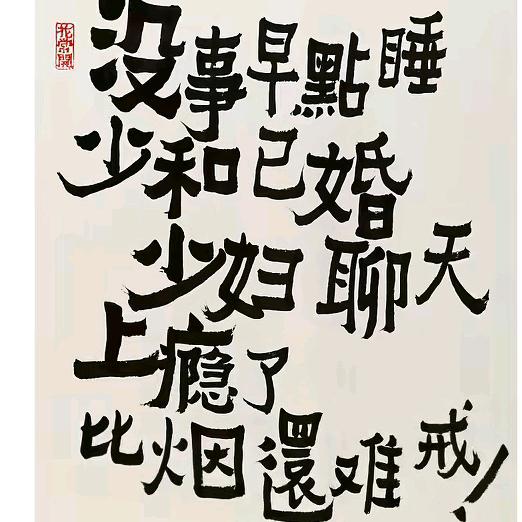 没事早點睡
少和已婚
少妇聊天
上瘾了
比烟還难戒!